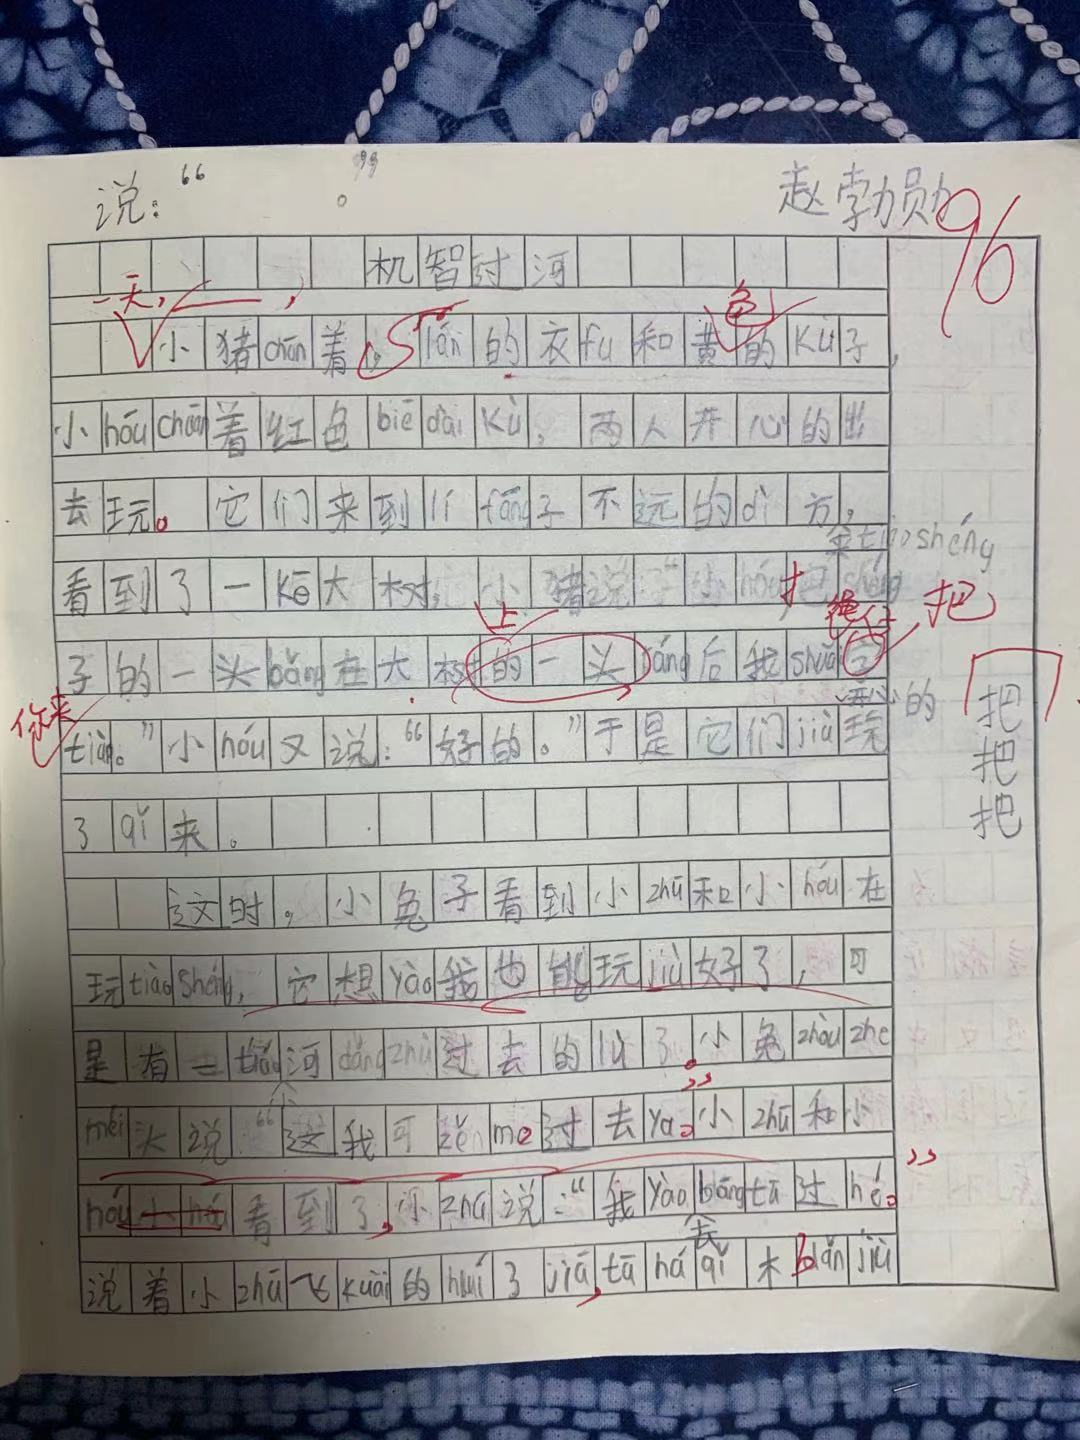 说：“ 。” 赵勃勋 96
机智过河
一天，
色
小猪chān着lán的衣fu和黄的kù子，
小hóu chuān着红色biē dài kù，两人开心的出
去玩。它们来到lí fāng子不远的dì方，
tiào shéng
看到了一kē大树，小猪说：“小hóu把shéng
上 绳 把
子的一头bǎng在大树的一头ráng后我shuǎi
你来 开心的 把
tiào。”小hóu又说：“好的。”于是它们jiù玩 把
了qǐ来。 把
这时，小兔子看到小zhū和小hóu在
玩tiào shéng，它想yào我也能玩jiù好了，可
是有一tiáo河dǎng zhù过去的lù了。小兔zhòu zhe
小 ”
méi头说“这我可zěn me过去ya。小zhū和小
hóu看到了，小zhū说：“我yào bāng tā过hé。”
去
说着小zhū飞kuài的huí了jiā，tā ná qǐ木bǎn jiù